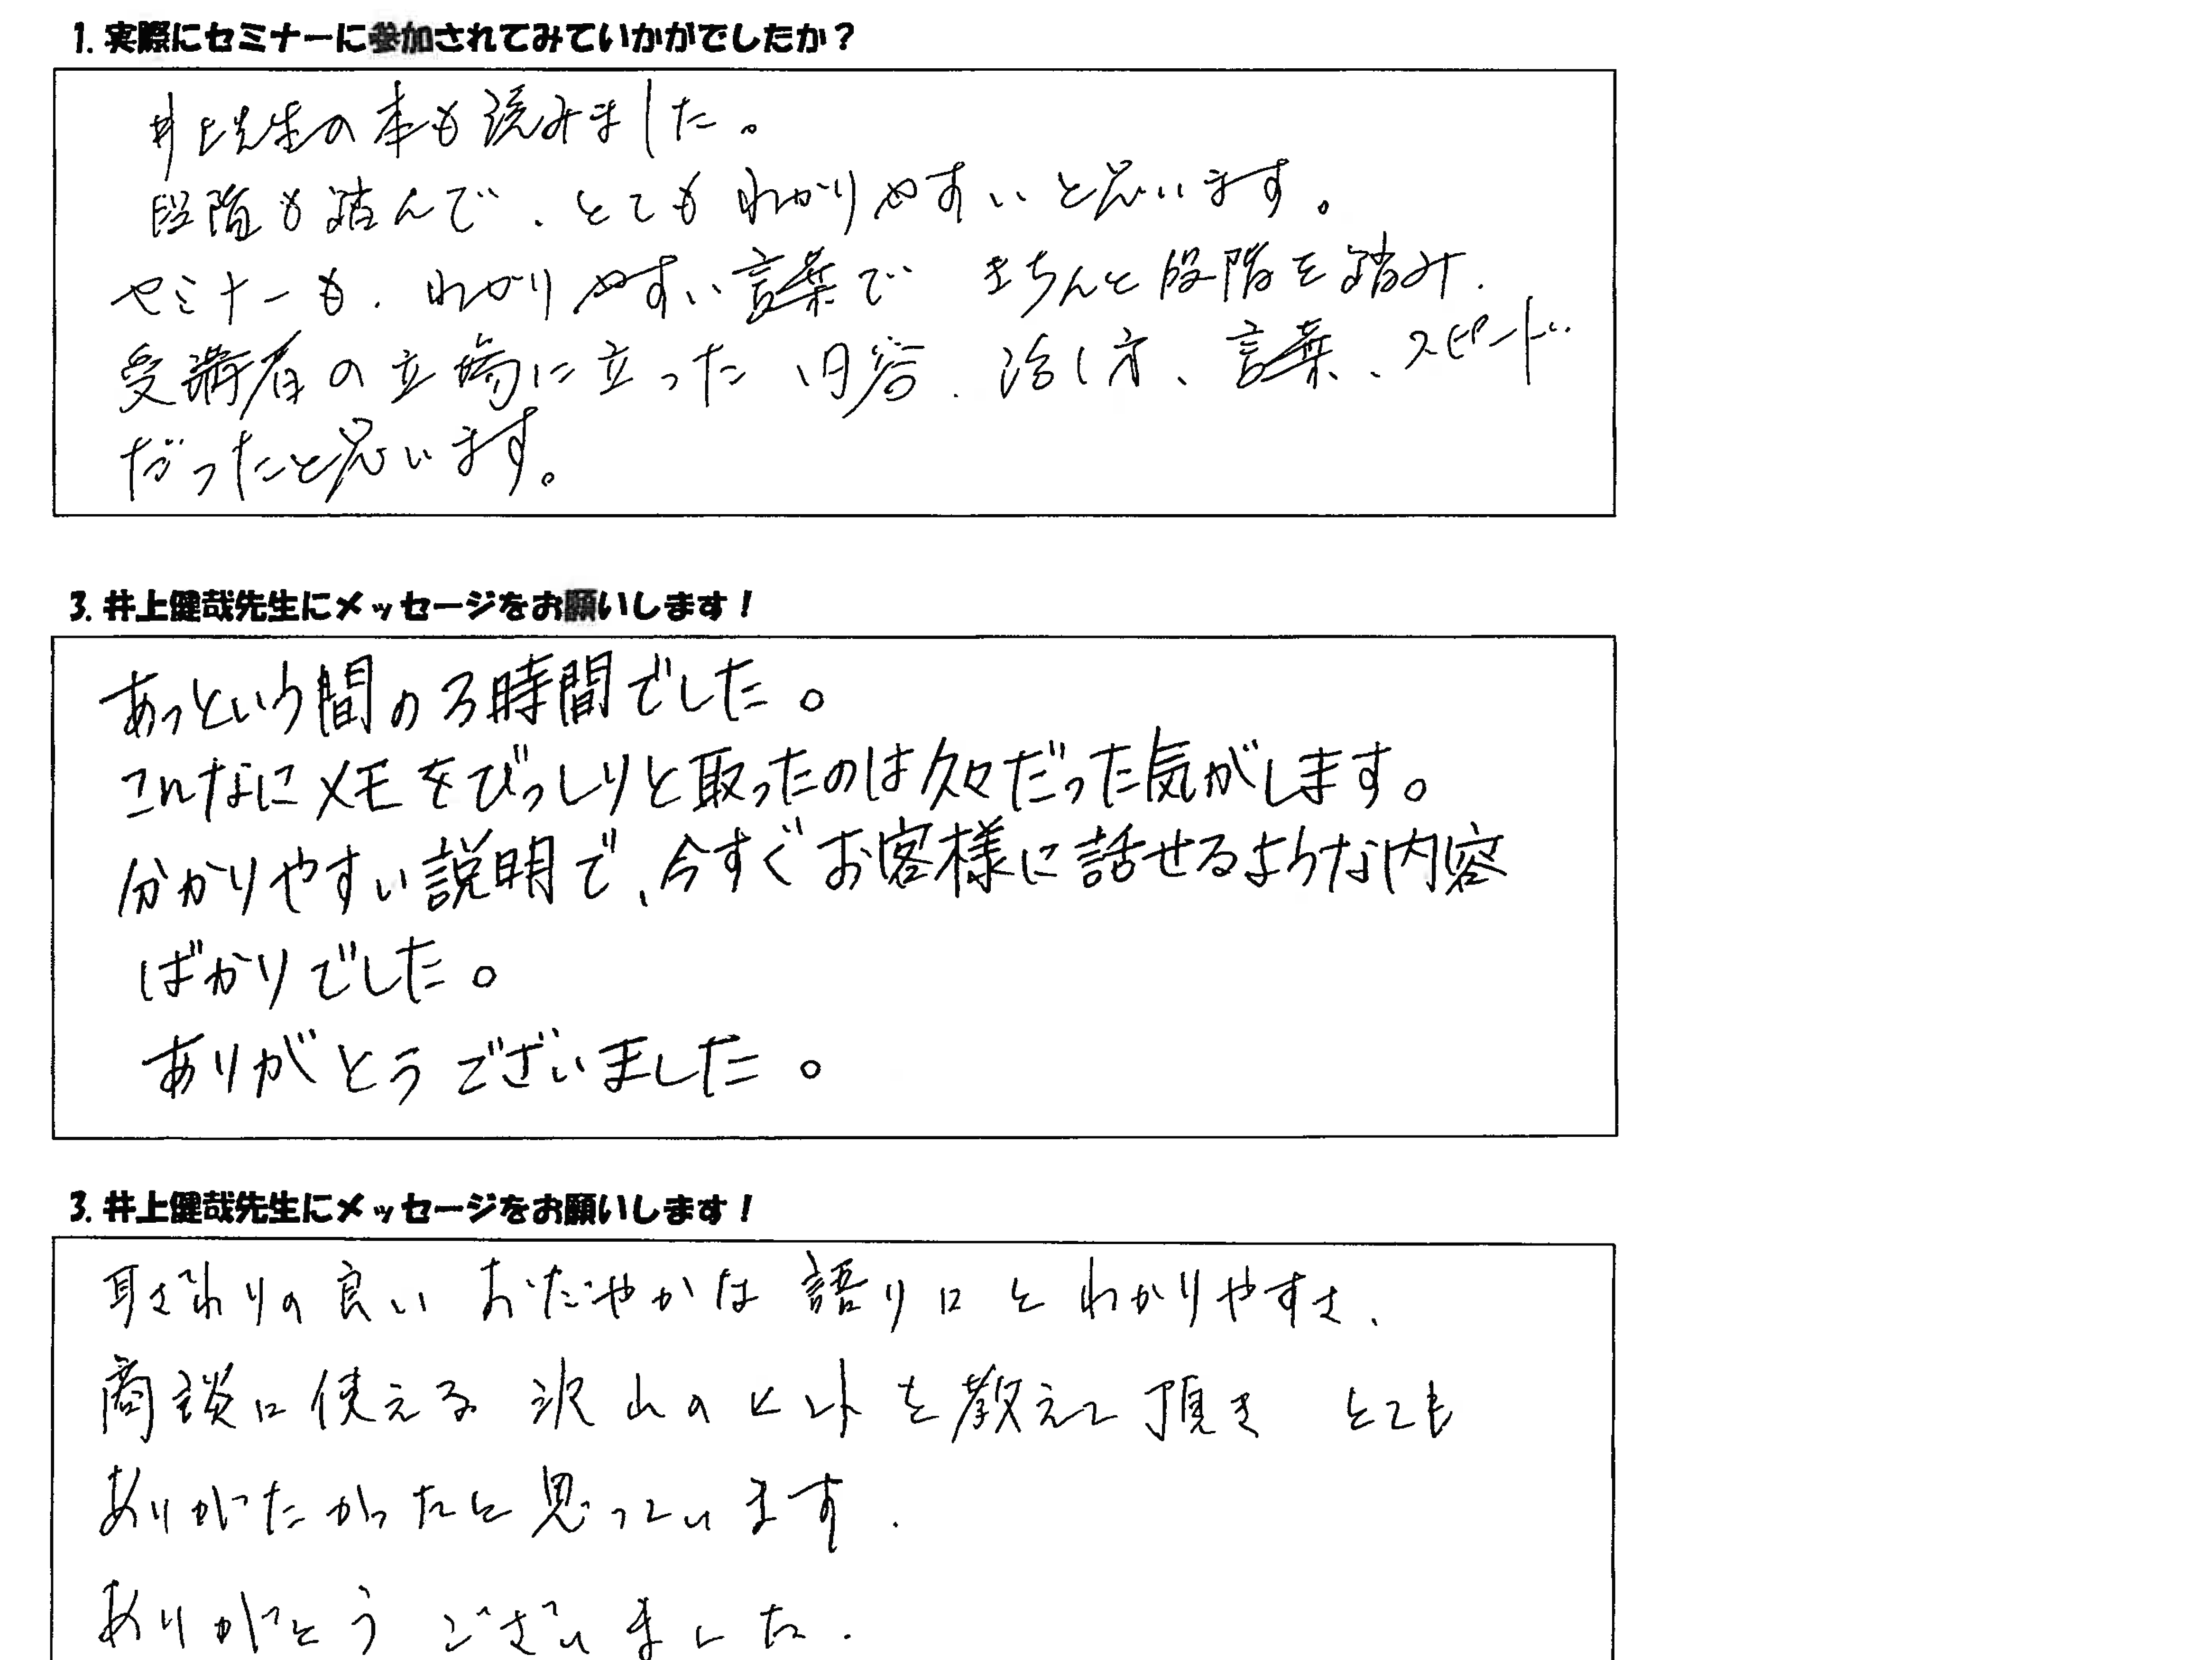 1. 実際にセミナーに参加されてみていかがでしたか？
井上先生の本も読みました。
段階も踏んで、とてもわかりやすいと思います。
セミナーも、わかりやすい言葉で きちんと段階を踏み、
受講者の立場に立った 内容、話し方、言葉、スピード
だったと思います。
3. 井上健哉先生にメッセージをお願いします！
あっという間の3時間でした。
こんなにメモをびっしりと取ったのは久々だった気がします。
分かりやすい説明で、今すぐお客様に話せるような内容
ばかりでした。
ありがとうございました。
3. 井上健哉先生にメッセージをお願いします！
耳ざわりの良い おだやかな 語り口と わかりやすさ、
商談に使える 沢山のヒントを教えて頂き とても
ありがたかったと思っています.
ありがとう ございました.